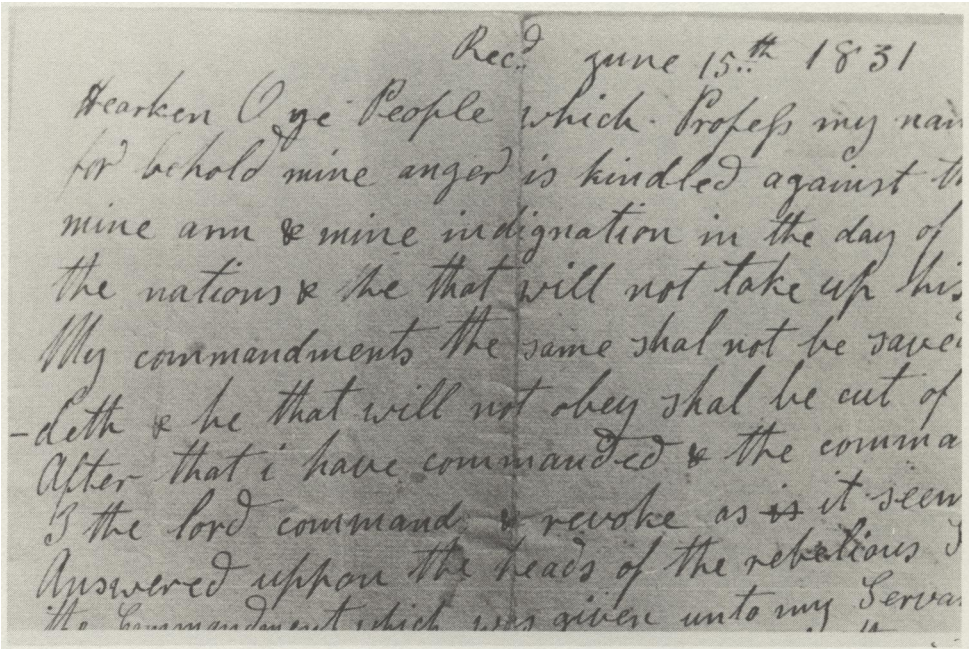 Rec.d June 15.th 1831
Hearken O ye People which Profess my nam
for behold mine anger is kindled against th
mine arm & mine indignation in the day of
the nations & the that will not take up his
My commandments the same shal not be save
-deth & he that will not obey shal be cut of
After that i have commanded & the comma
I the lord command & revoke as is it seem
Answered uppon the heads of the rebelious I
the Commandment which was given unto my Serva